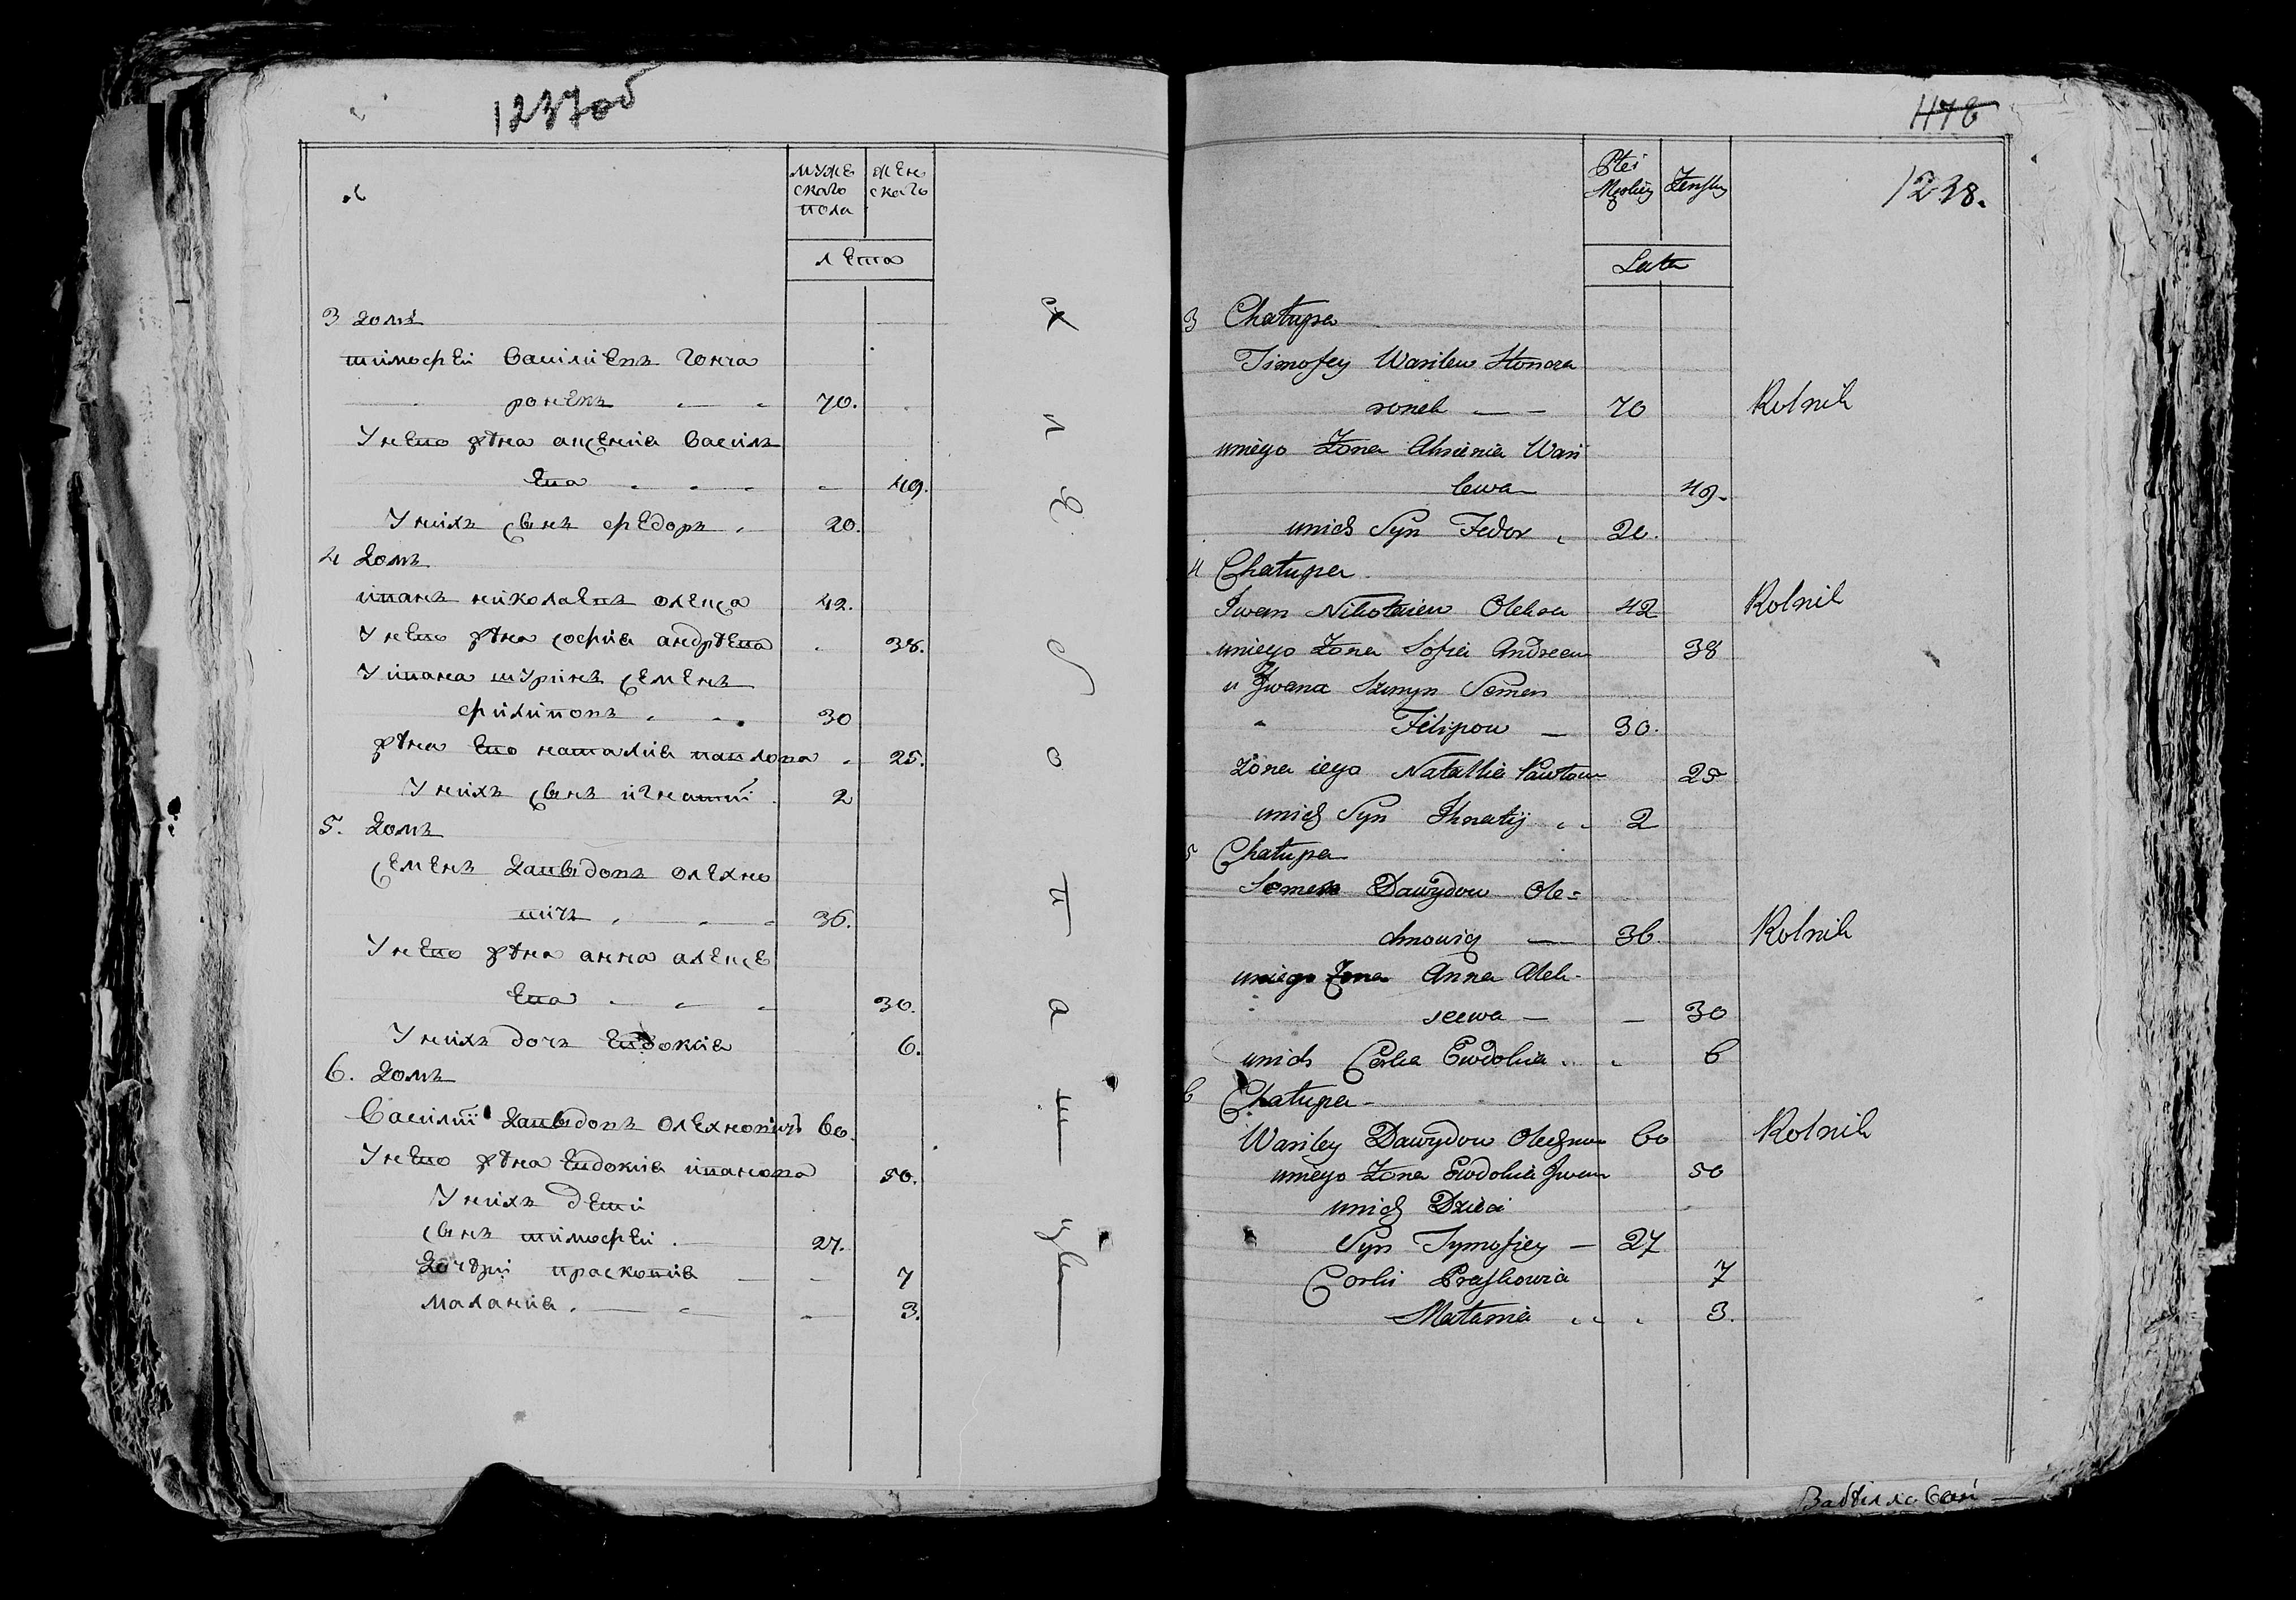 1237об
мужеского пола
женскаго
лета
3 домъ
тимофей василиевъ гонча
ровекъ 70.
У него жѣна аксения василь
ева 49.
У нихъ сынъ федоръ 20.
4 домъ
иванъ николаевъ олекса 42.
У него жѣна софия андрѣева 38.
У ивана шуринъ семенъ
филиповъ 30
жѣна его наталия павлова 25.
У нихъ сынъ игнатий 2
5. домъ
семенъ давыдовъ олехно
вичъ 36.
У него жѣна анна алексе
ева 30.
У нихъ дочь евдокия 6.
6. домъ
василий давыдовъ олехновичъ 60.
У него жѣна евдокия иванова 50.
У нихъ дети
сынъ тимофей 27.
дочѣри прасковия 7
малания 3.
476
1238.
Płci
Męskiey
Żenskiey
Lata
3 Chałupa
Timofey Wasilew Honcza
ronek 70 Rolnik
uniego Żona Aksienia Wasi
lewa 49
unich Syn Fedor 20.
4 Chałupa
Jwan Nikołaiew Oleksa 42 Rolnik
uniego Żona Sofia Andreew 38
u Jwana Szuryn Semen
Filipow 30.
Żona iego Natallia Pawłow 25
unich Syn Jhnatij 2
5 Chałupa
Semen Dawydow Ole=
chnowicz 36. Rolnik
uniego Żona Anna Alek
seewa 30
unich Corka Ewdokia 6
6 Chałupa
Wasiley Dawydow Olechnow 60 Rolnik
uniego Żona Ewdokia Jwan 50
unich Dzieci
Syn Tymofiey 27
Corki Praskowia 7
Małania 3.